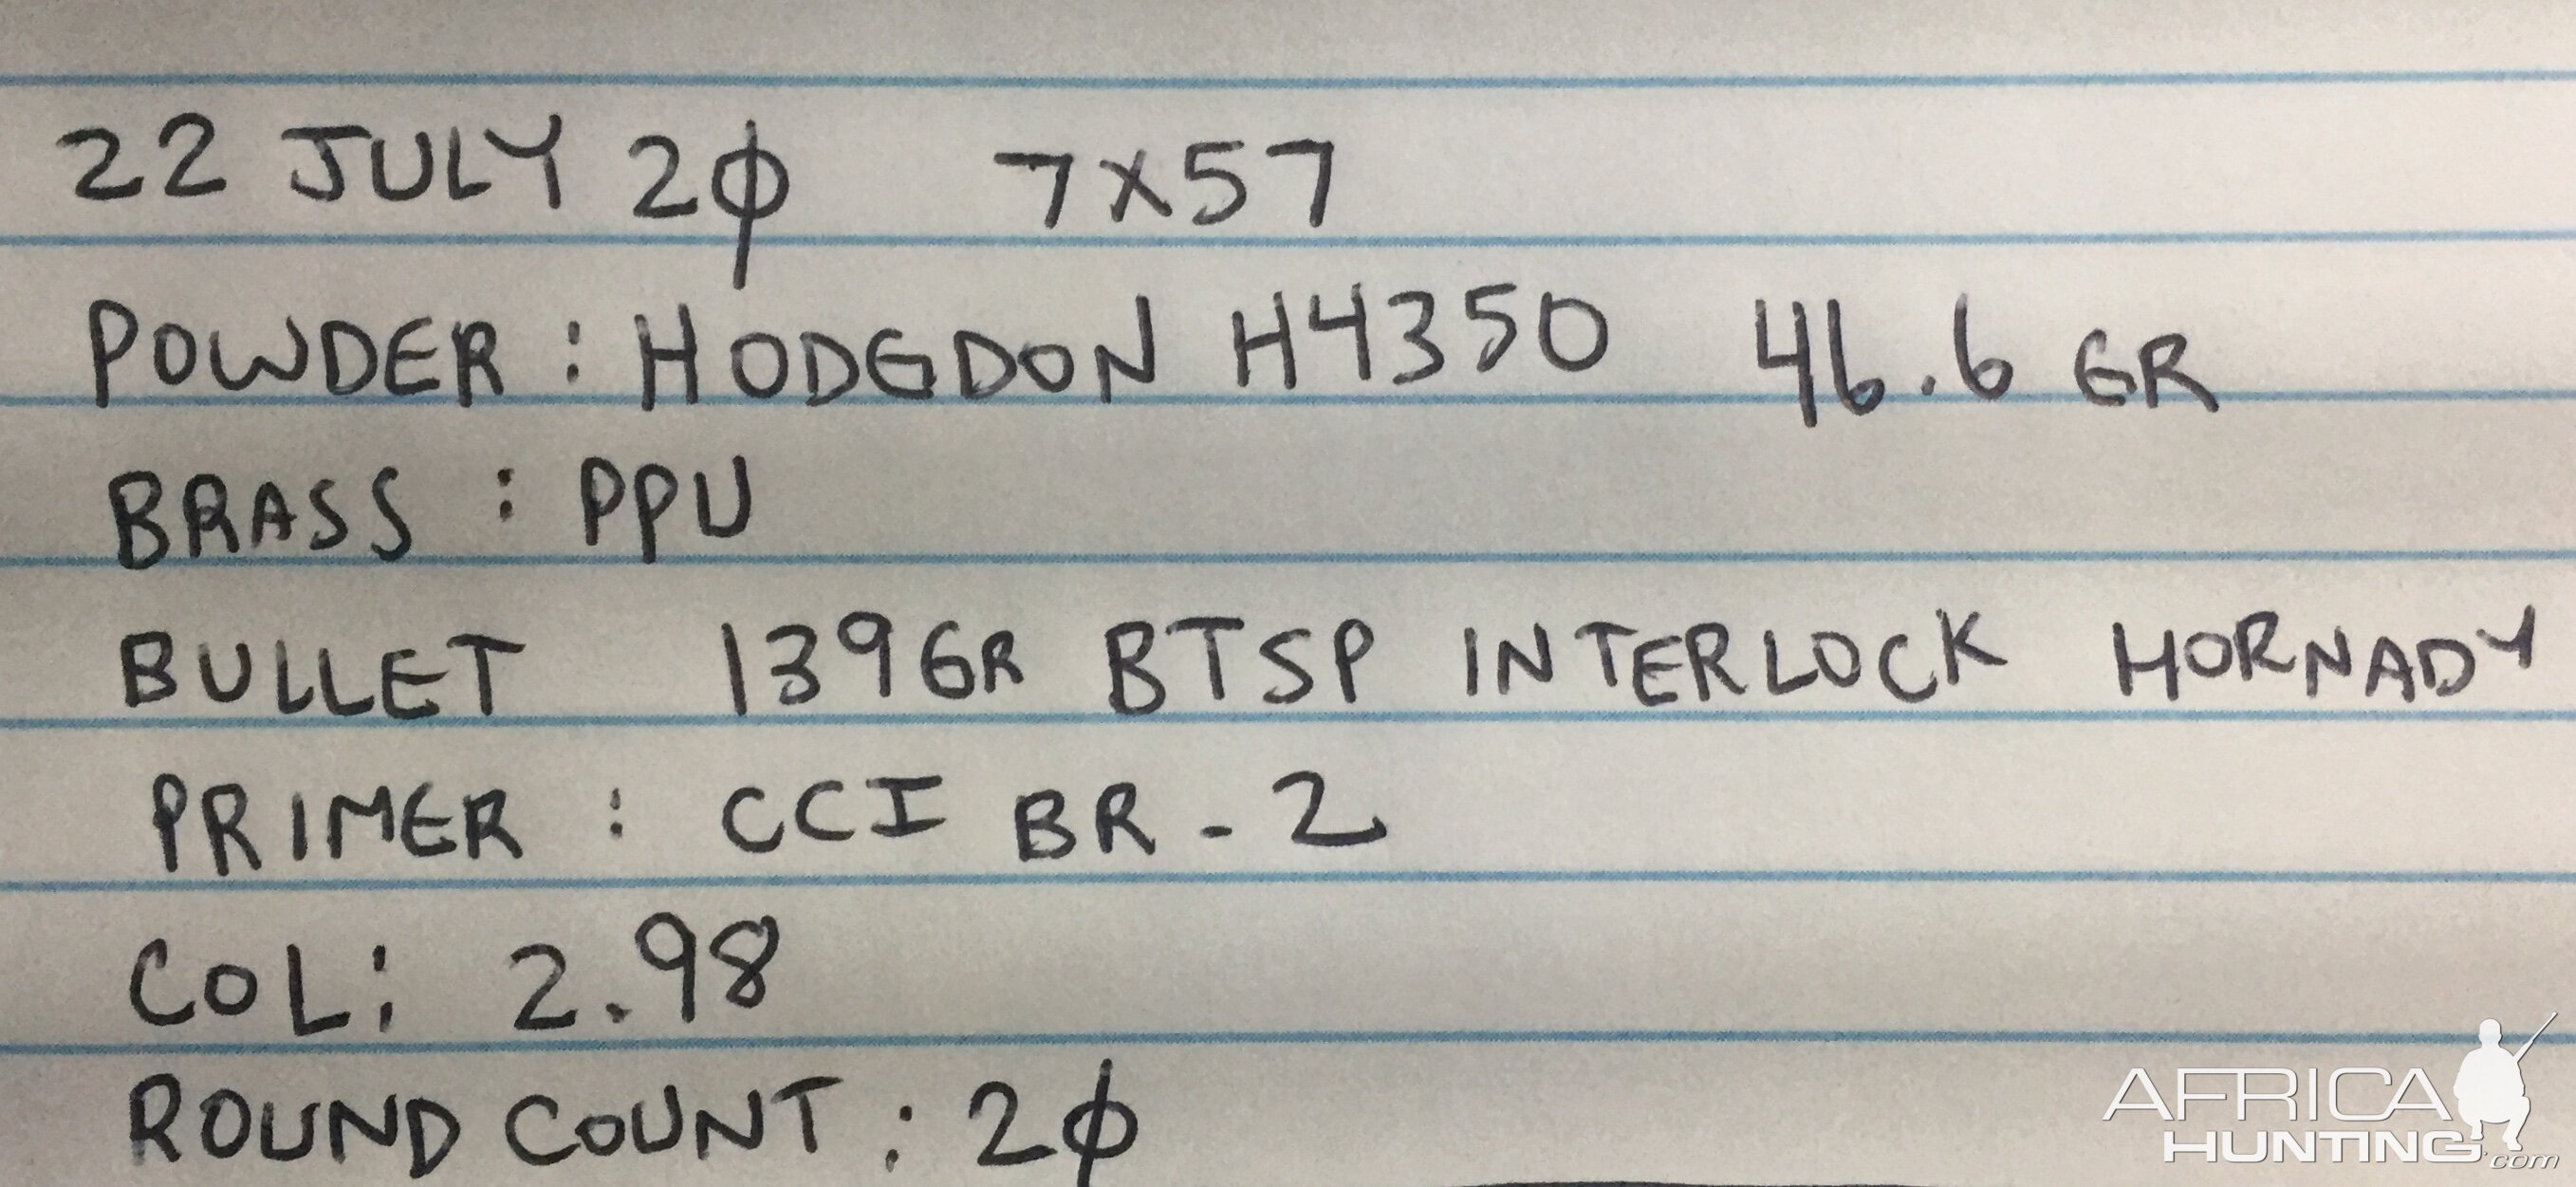 22 JULY 2φ 7X57
POWDER : HODGDON H4350 46.6 GR
BRASS : PPU
BULLET 139GR BTSP INTERLOCK HORNADY
PRIMER : CCI BR - 2
COL: 2.98
ROUND COUNT : 2φ
AFRICA
HUNTING.com